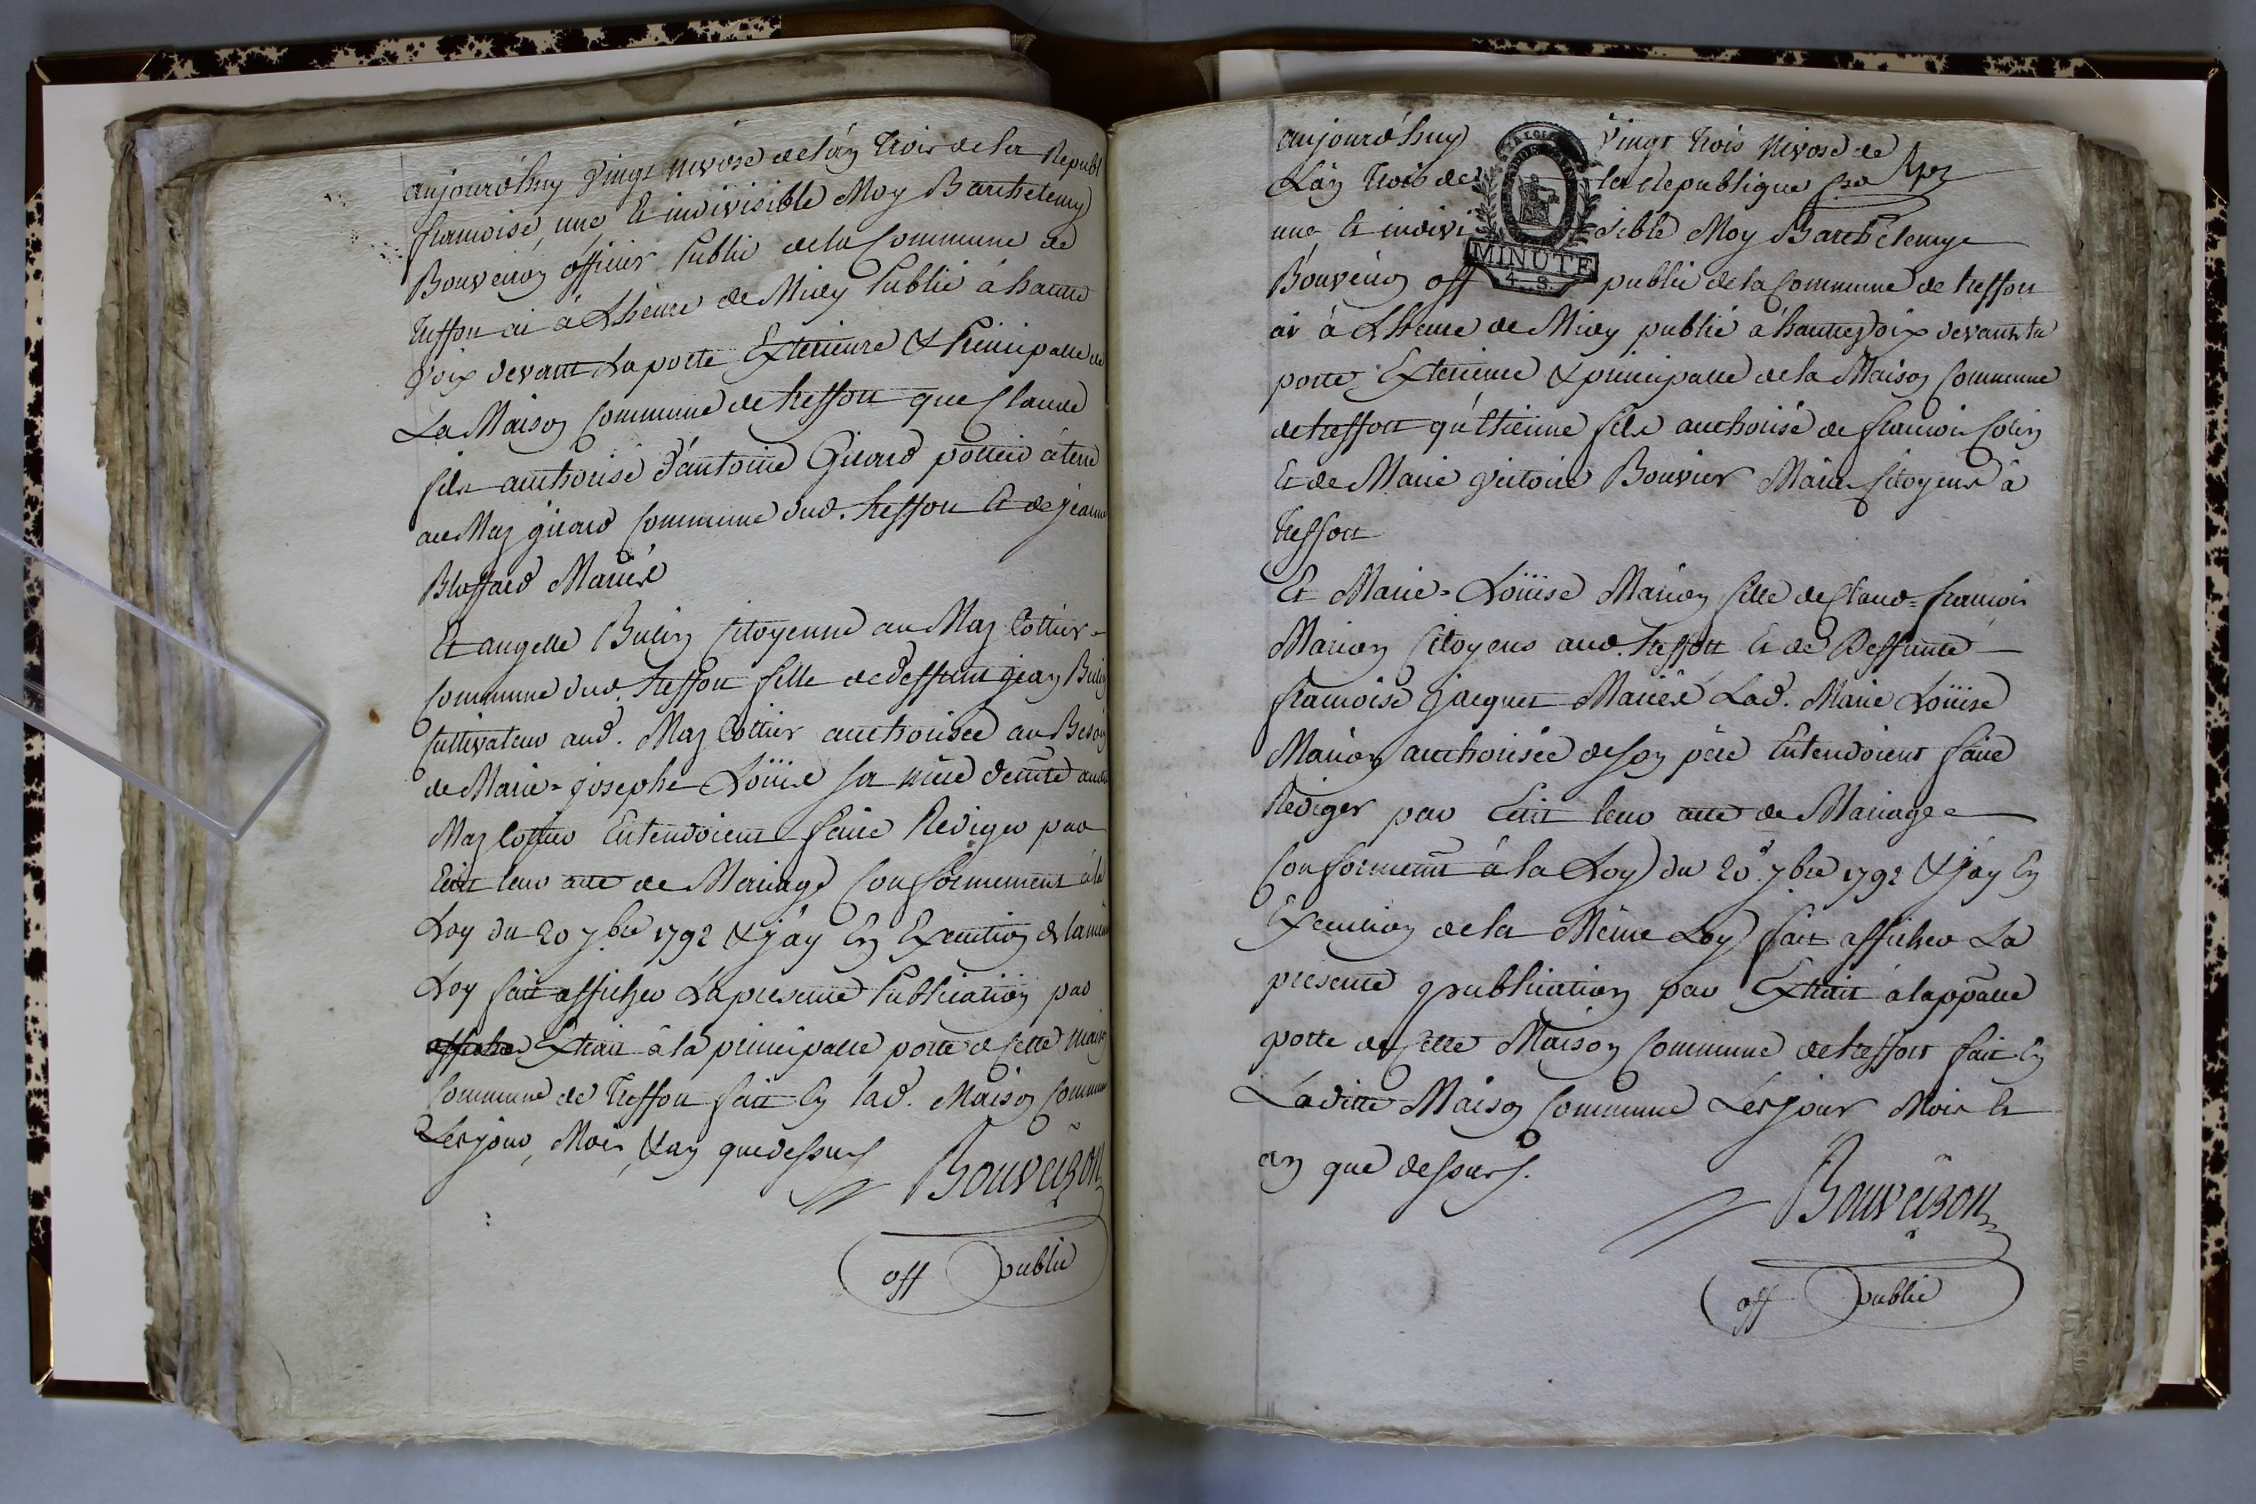 aujourd'huy vingt nivose de l'an trois de la Republ
françoise, une, et indivisible Moy Barthelemy
Bouveiron officier public de la Commune de
treffort ai à L'heure de Midy Publié à hautte
voix devant La porte Exterieure & Principalle de
La Maison Commune de treffort que Claude
fils authorisé d'antoine Girard pottier à terre
au Maz girard Commune dud. treffort et de jeanne
Bloffard Mariés
Et angelle Bulin Citoyenne au Maz Cottier
Commune dud. treffort fille de deffunt jean Bulin
Cultivateur aud. Maz Cottier authorisée au Besoin
de Marie-josephe Loüise sa mère demte aud.
Maz Cottier Entendoient faire Rediger par
Ecrit leur acte de Mariage Conformement à la
Loy du 20 7bre 1792 & j'ay En Execution de la même
Loy fait afficher La presente Publication par
affiche Extrait à la principalle porte de Cette Maison
Commune de treffort fait En lad. Maison Commune
Les jour, Mois, & an que dessus
Bouveiron
off public
aujourd'huy vingt trois Nivose de
L'an trois de la Republique
une et indivisible Moy Barthelemy
Bouveiron off public de la Commune de treffort
ai à L'heure de Midy publié à hautte voix devant la
porte Exterieure & principalle de la Maison Commune
de treffort qu'Etienne fils authorisé de françois Colin
Et de Marie victoire Bouvier Mariés Citoyens à
treffort
Et Marie-Loüise Marion fille de Claud-françois
Marion Citoyens aud. treffort et de Deffunte
françoise jacquet Mariés Lad. Marie Loüise
Marion authorisée de son père Entendoient faire
Rediger par Ecrit leur acte de Mariage
Conformemt à la Loy du 20 7bre 1792 & j'ay En
Execution de la Même Loy fait afficher La
presente publication par Extrait à la ppalle
porte de Cette Maison Commune de treffort fait En
Laditte Maison Commune Les jour Mois et
an que dessus.
Bouveiron
off public
MINUTE
4. S.